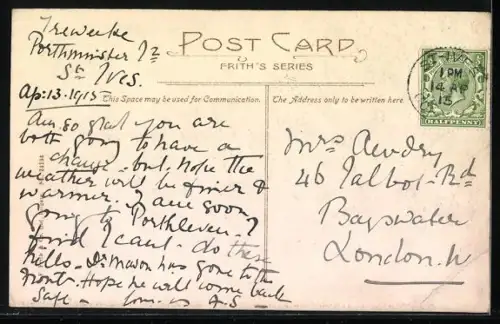 Treweeke
Porthminster Tz
St Ives.
Ap: 13. 1915
POST CARD
FRITH'S SERIES
This Space may be used for Communication.
The Address only to be written here
ST. IVES
1 PM
14 AP
15
HALFPENNY
Am so glad you are
both going to have a
change - but hope the
weather will be finer &
warmer. I am soon
going to Porthleven - I
find I can't do these
hills - Dr Mason has gone to the
front - Hope he will come back
safe - 
Mrs Awdry
46 Talbot Rd
Bayswater
London. W